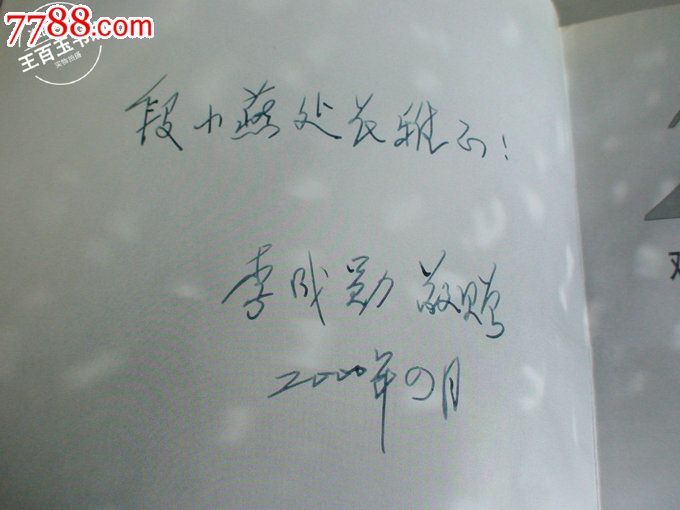 7788.com
王百玉书
实物拍摄
段小燕处长雅正!
李成勋 敬赠
2000年四月